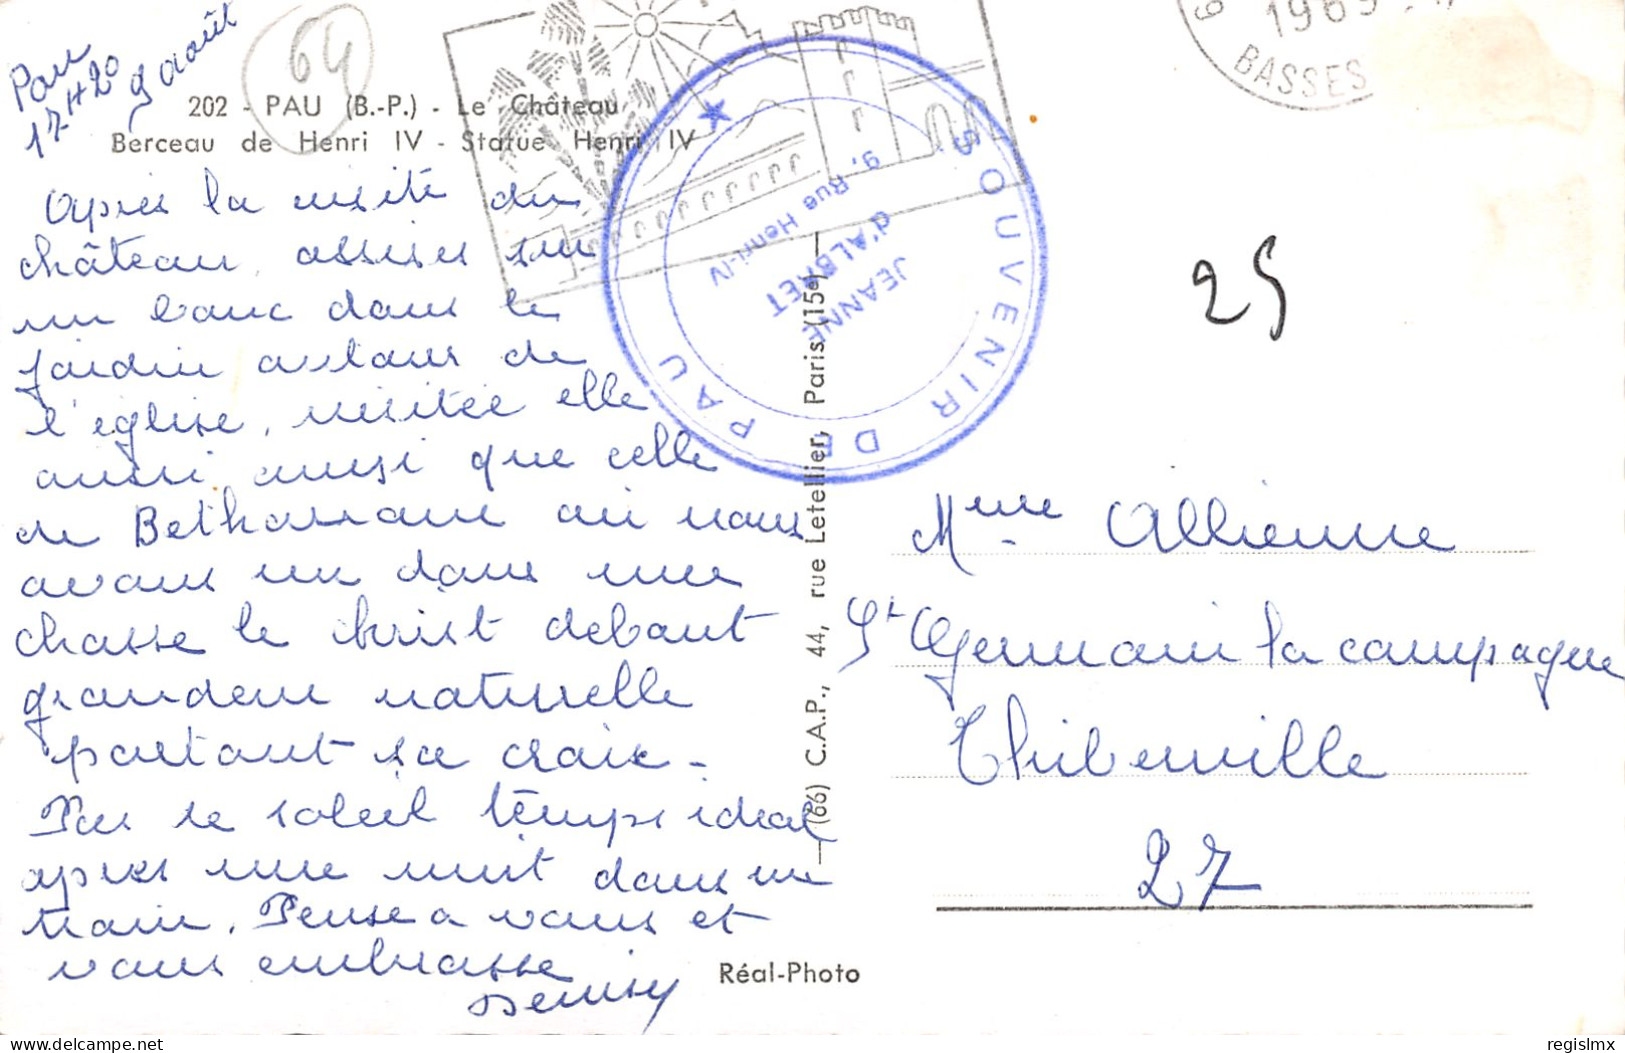 Pau
17H20 9 août
64
202 - PAU (B.-P.) - Le Château
Berceau de Henri IV - Statue Henri IV
Après la visite du
château, assises sur
un banc dans le
jardin autour de
l'église, visitée elle
aussi ainsi que celle
de Betharram où nous
avons vu dans une
chasse le christ debout
grandeur naturelle
portant sa croix -
Pas de soleil temps idéal
après une nuit dans un
train. Pense à vous et
vous embrasse
Denisy
SOUVENIR DE PAU
JEANNE
d'ALBRET
9, Rue Henri-IV
BASSES
(66) C.A.P., 44, rue Letellier, Paris (15e)
25
Mme Allienne
St Germain la campagne
Thiberville
27
Réal-Photo
delcampe.net
regislmx